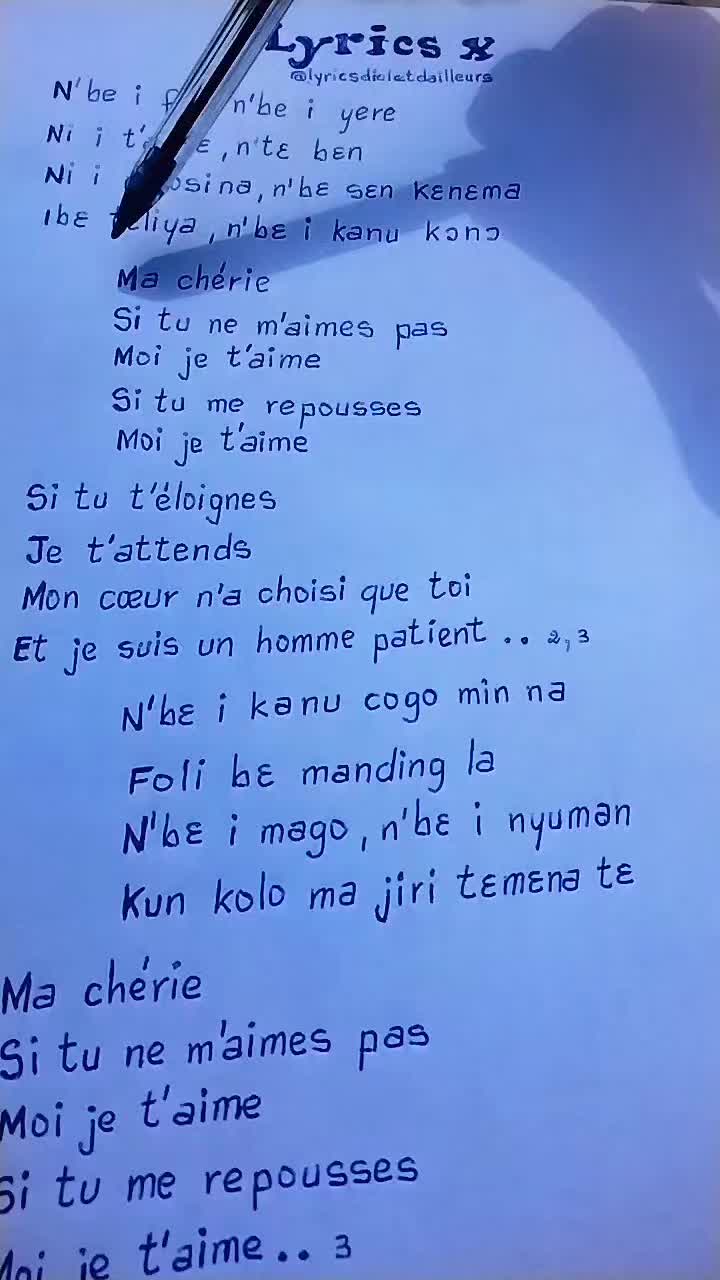 Lyrics x
@lyricsdicietdailleurs
N'be i n'be i yere
Ni i , n'tɛ bɛn
Ni i n'bɛ sɛn kɛnɛma
Ibɛ , n'bɛ i kanu kɔnɔ
Ma chérie
Si tu ne m'aimes pas
Moi je t'aime
Si tu me repousses
Moi je t'aime
Si tu t'éloignes
Je t'attends
Mon cœur n'a choisi que toi
Et je suis un homme patient .. 2,3
N'bɛ i kanu cogo min na
Foli bɛ manding la
N'bɛ i mago, n'bɛ i nyuman
Kun kolo ma jiri tɛmɛna tɛ
Ma chérie
Si tu ne m'aimes pas
Moi je t'aime
Si tu me repousses
Moi je t'aime.. 3